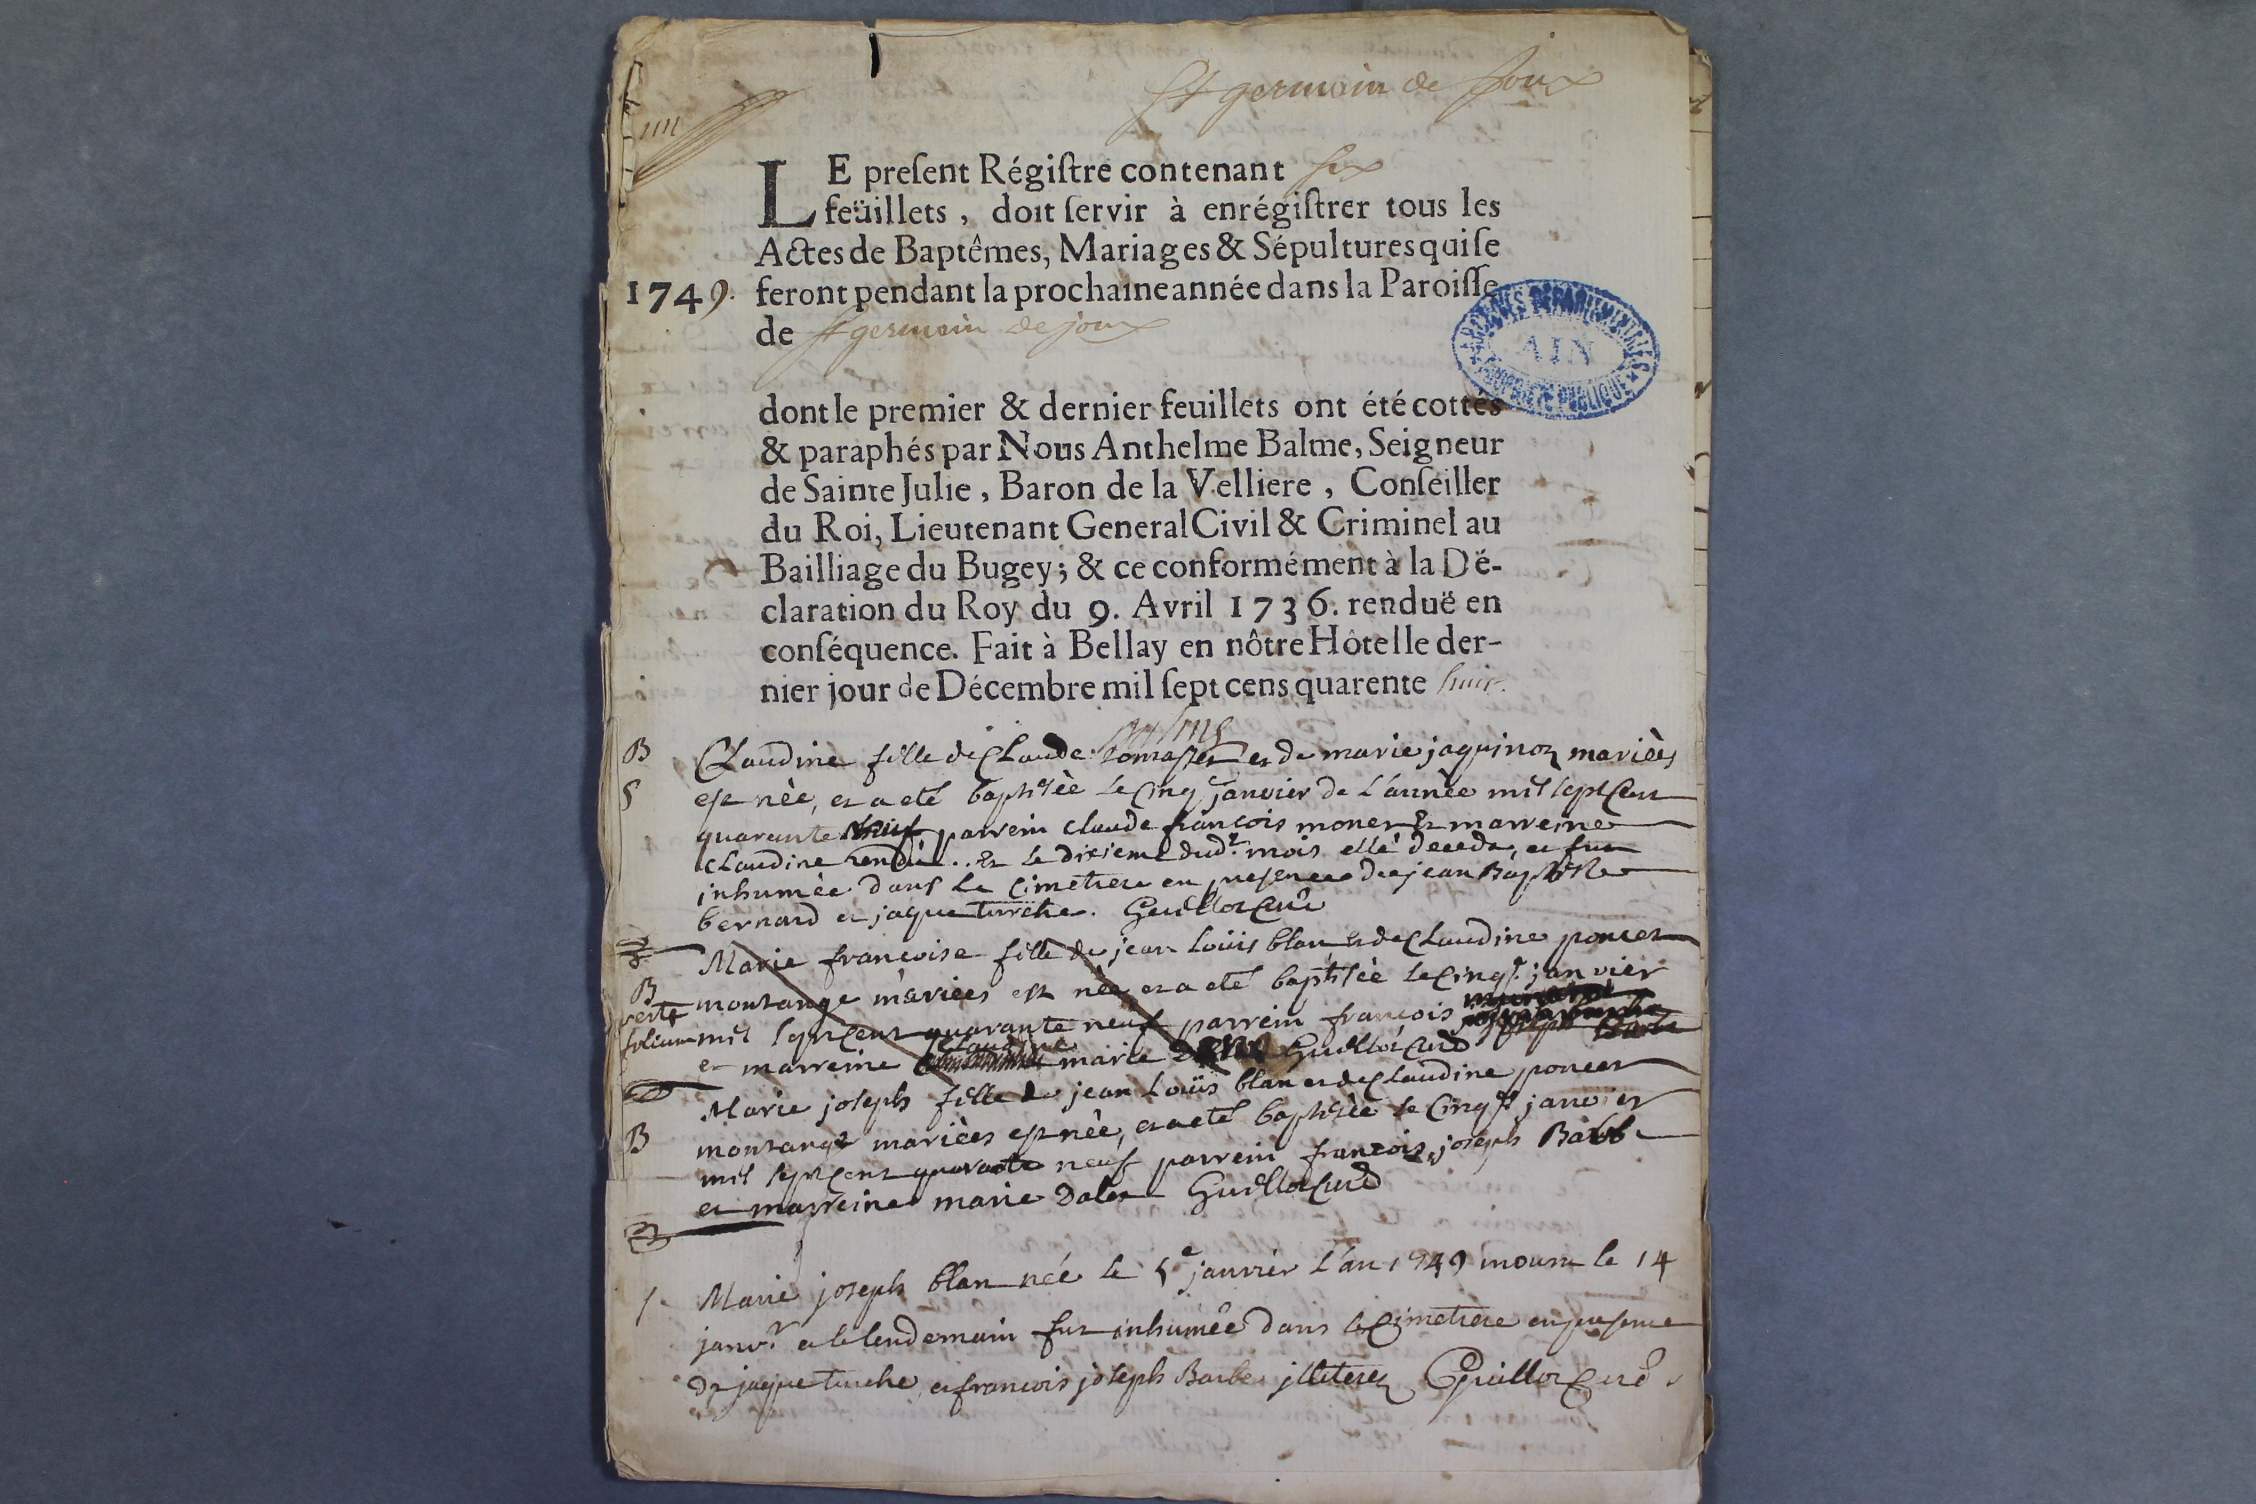 St germain de Joux
LE preſent Régiſtre contenant six
feüillets, doit ſervir à enrégiſtrer tous les
Actes de Baptêmes, Mariages & Sépultures qui ſe
1749. feront pendant la prochaine année dans la Paroiſſe
de St germain de joux
ARCHIVES DEPARTEMENTALES AIN
dont le premier & dernier feuillets ont été cottés
& paraphés par Nous Anthelme Balme, Seigneur
de Sainte Julie, Baron de la Velliere, Conſeiller
du Roi, Lieutenant General Civil & Criminel au
Bailliage du Bugey; & ce conformément à la Dé-
claration du Roy du 9. Avril 1736. renduë en
conſéquence. Fait à Bellay en nôtre Hôtel le der-
nier jour de Décembre mil ſept cens quarente huit.
Balme
B Claudine fille de Claude et de marie jaquinoz mariès
S est nèe, et a eté baptisèe le cinq janvier de l'annèe mil sept cent
quarante neuf parrein claude françois monet Et marreine
claudine rendu.. Et le dixieme dudt mois elle deceda, et fut
inhumèe dans le cimetiere en presence de jean Baptiste
bernard et jaque turche. Guillot Curé
Marie françoise fille de jean Loüis blan et de Claudine poncet
B montange mariées est nèe et a eté baptisèe le cinq. janvier
verte mil sept cent quarante neuf parrein françois joseph Barbe
folium et marreine Claudine marie Guillot Curé
Marie joseph fille de jean Loüis blan et de Claudine poncet
B montange mariées est nèe, et a eté baptisèe le cinq janvier
mil sept cent quarante neuf parrein françois, joseph Barbe
et marreine marie Dalet Guillot Curé
S Marie joseph blan née le 5e janvier l'an 1749 mourut le 14
janvr et le lendemain fut inhumée dans le Cimetiere en presence
De jaque turche et françois joseph Barbe jlliterez Guillot Curé